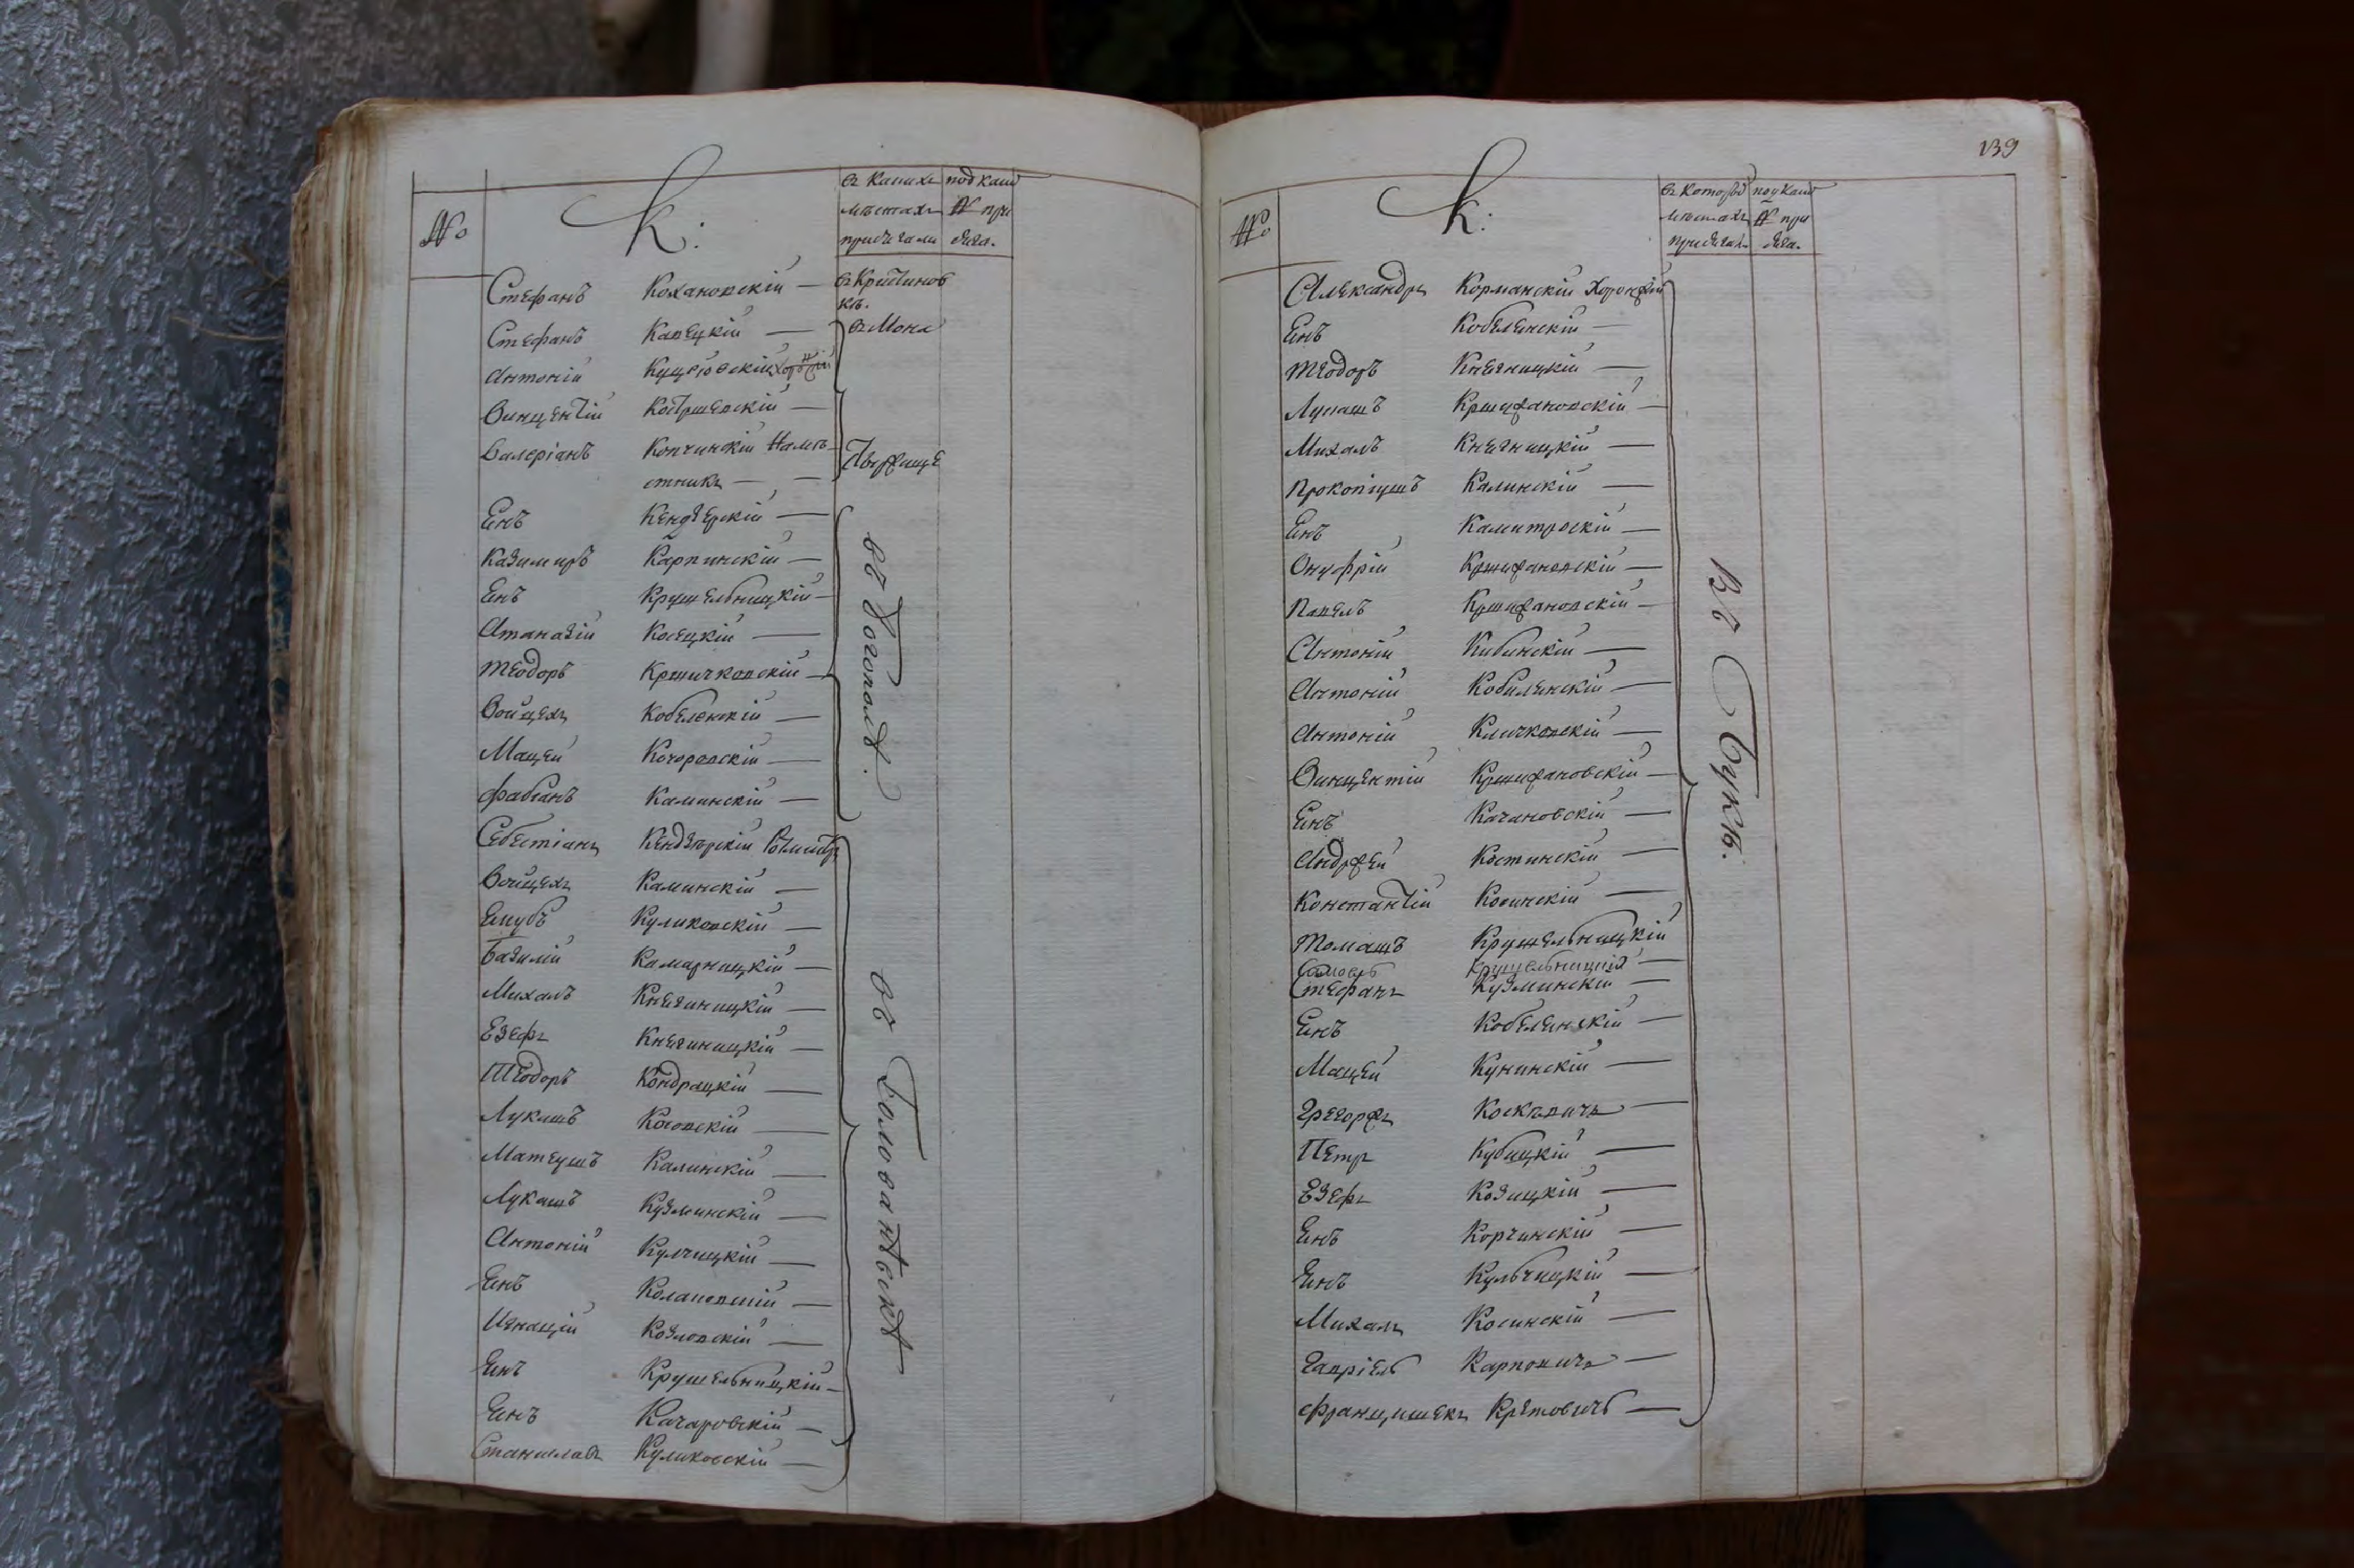 №
К:
въ какихъ
мѣстахъ
присягали
под каки
№ при
сяга.
Стефанъ Кохановскій — въ Кривинов
кѣ.
Стефанъ Капецкій — въ Мона
Антоній
Винцентій —
Валеріанъ Копчинскій Намѣ-
стникъ —
Енъ Кендзерскій —
Казимиръ Карпинскій —
Енъ Крушельницкій —
Атаназій Косецкій —
Теодоръ Кршичковскій —
Войцехъ Кобеленскій —
Мацей Качоровскій —
въ Богополѣ.
Фабіанъ Каминскій —
Себестіанъ Кендзерскій Ротмистръ
Войцехъ Каминскій —
Якубъ Куликовскій —
Базилій Камарницкій —
Михалъ Княгиницкій —
Езефъ Княгиницкій —
Теодоръ Кондрацкій —
Лукашъ Косовскій —
Матеушъ Калинскій —
Лукашъ Кузминскій —
Антоній Кулчицкій —
Енъ —
Игнацій Козловскій —
Енъ Крушельницкій —
Енъ Качаровскій —
Станиславъ Куликовскій —
въ Голованѣвскѣ
139
№
К:
въ которы
мѣстахъ
присягал.
под каки
№ при
сяга.
Александръ Корманскій Хоронжій
Енъ Кобелянскій —
Теодоръ Княгницкій —
Лукашъ Кршижановскій —
Михалъ Княгницкій —
Прокопіушъ Калинскій —
Енъ —
Онуфрій Кршижановскій —
Павелъ Кршижановскій —
Антоній Кибинскій —
Антоній Кобилянскій —
Антоній Кличковскій —
Винцентій Кршижановскій —
Енъ Качановскій —
Андржей Костинскій —
Константій Косинскій —
Томашъ Крушельницкій
Крушельницкій —
Стефанъ Кузминскій —
Енъ Кобелянскій —
Мацей Кунинскій —
Грегоржъ —
Петръ Кубицкій —
Езефъ Козицкій —
Енъ Корчинскій —
Енъ Кульчицкій —
Михалъ Косинскій —
Гапріель Карповичъ —
Францишекъ Кретовичъ —
въ Букѣ.